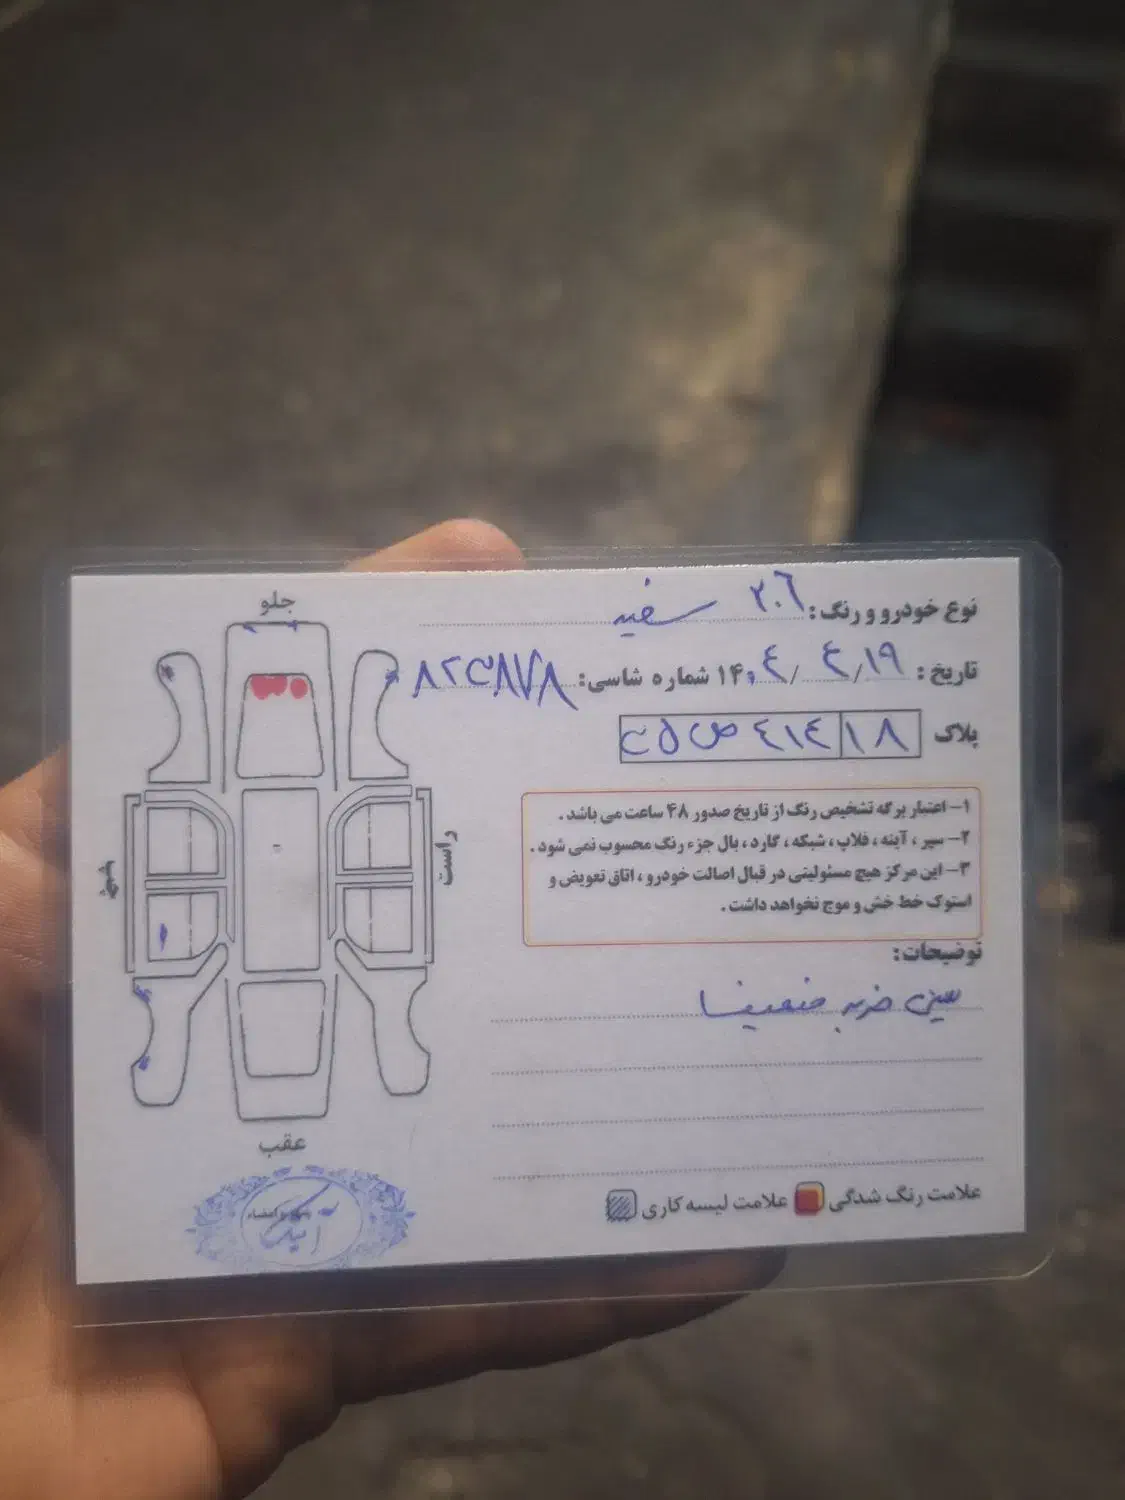 جلو
نوع خودرو و رنگ: ۲۰۶ سفید
تاریخ: ۱۴۰۴/۴/۱۹ شماره شاسی:
پلاک ۱۸
۱- اعتبار برگه تشخیص رنگ از تاریخ صدور ۴۸ ساعت می باشد.
۲- سپر، آینه، فلاپ، شبکه، گارد، بال جزء رنگ محسوب نمی شود.
۳- این مرکز هیچ مسئولیتی در قبال اصالت خودرو، اتاق تعویض و
استوک خط خش و موج نخواهد داشت.
راست
توضیحات:
سینی ضربه ضعیفا
عقب
علامت رنگ شدگی علامت لیسه کاری